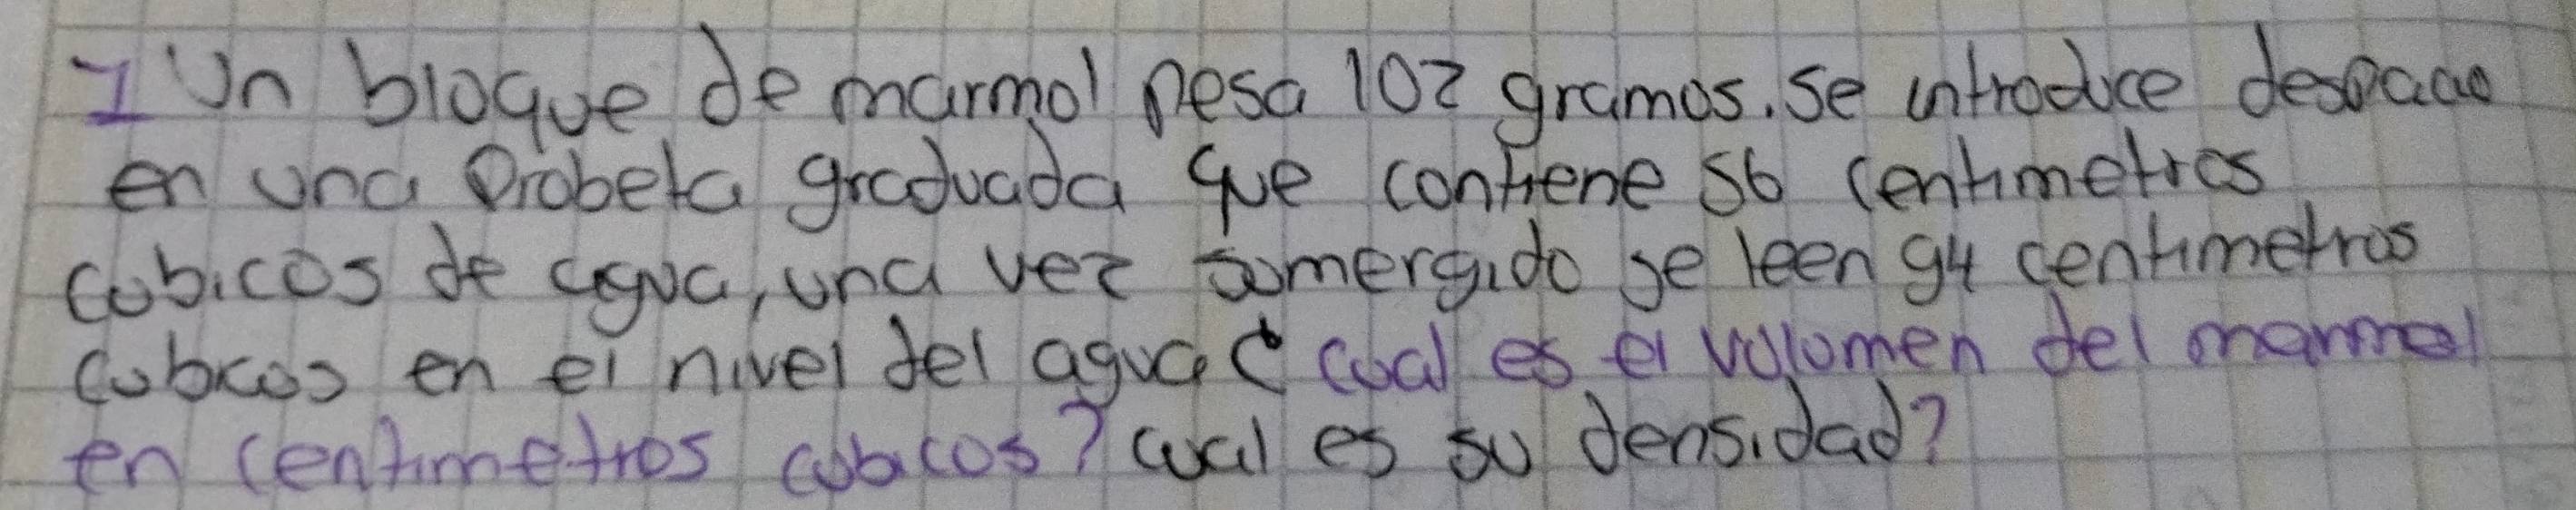 1 Un bloque de marmol pesa 102 gramos. Se introduce despacio
en una Probeta graduada que contiene 56 centimetros
cubicos de agua, una vez sumergido se leen 94 centimetros
cubicos en el nivel del agua ¿ cual es el volumen del marmol
en centimetros cubicos? cual es su densidad?